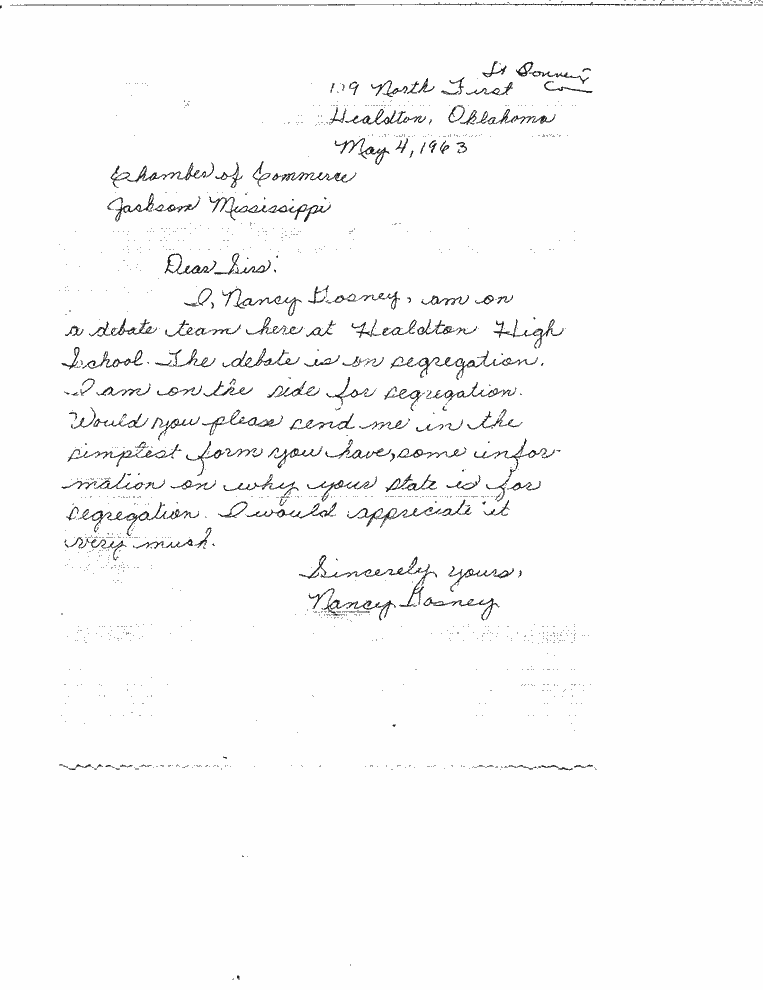 119 North First
Healdton, Oklahoma
May 4, 1963
Chamber of Commerce
Jackson Mississippi
Dear Sirs:
I, Nancy Gosney, am on
a debate team here at Healdton High
School. The debate is on segregation.
I am on the side for segregation.
Would you please send me in the
simplest form you have, some infor-
mation on why your state is for
segregation. I would appreciate it
very much.
Sincerely yours,
Nancy Gosney